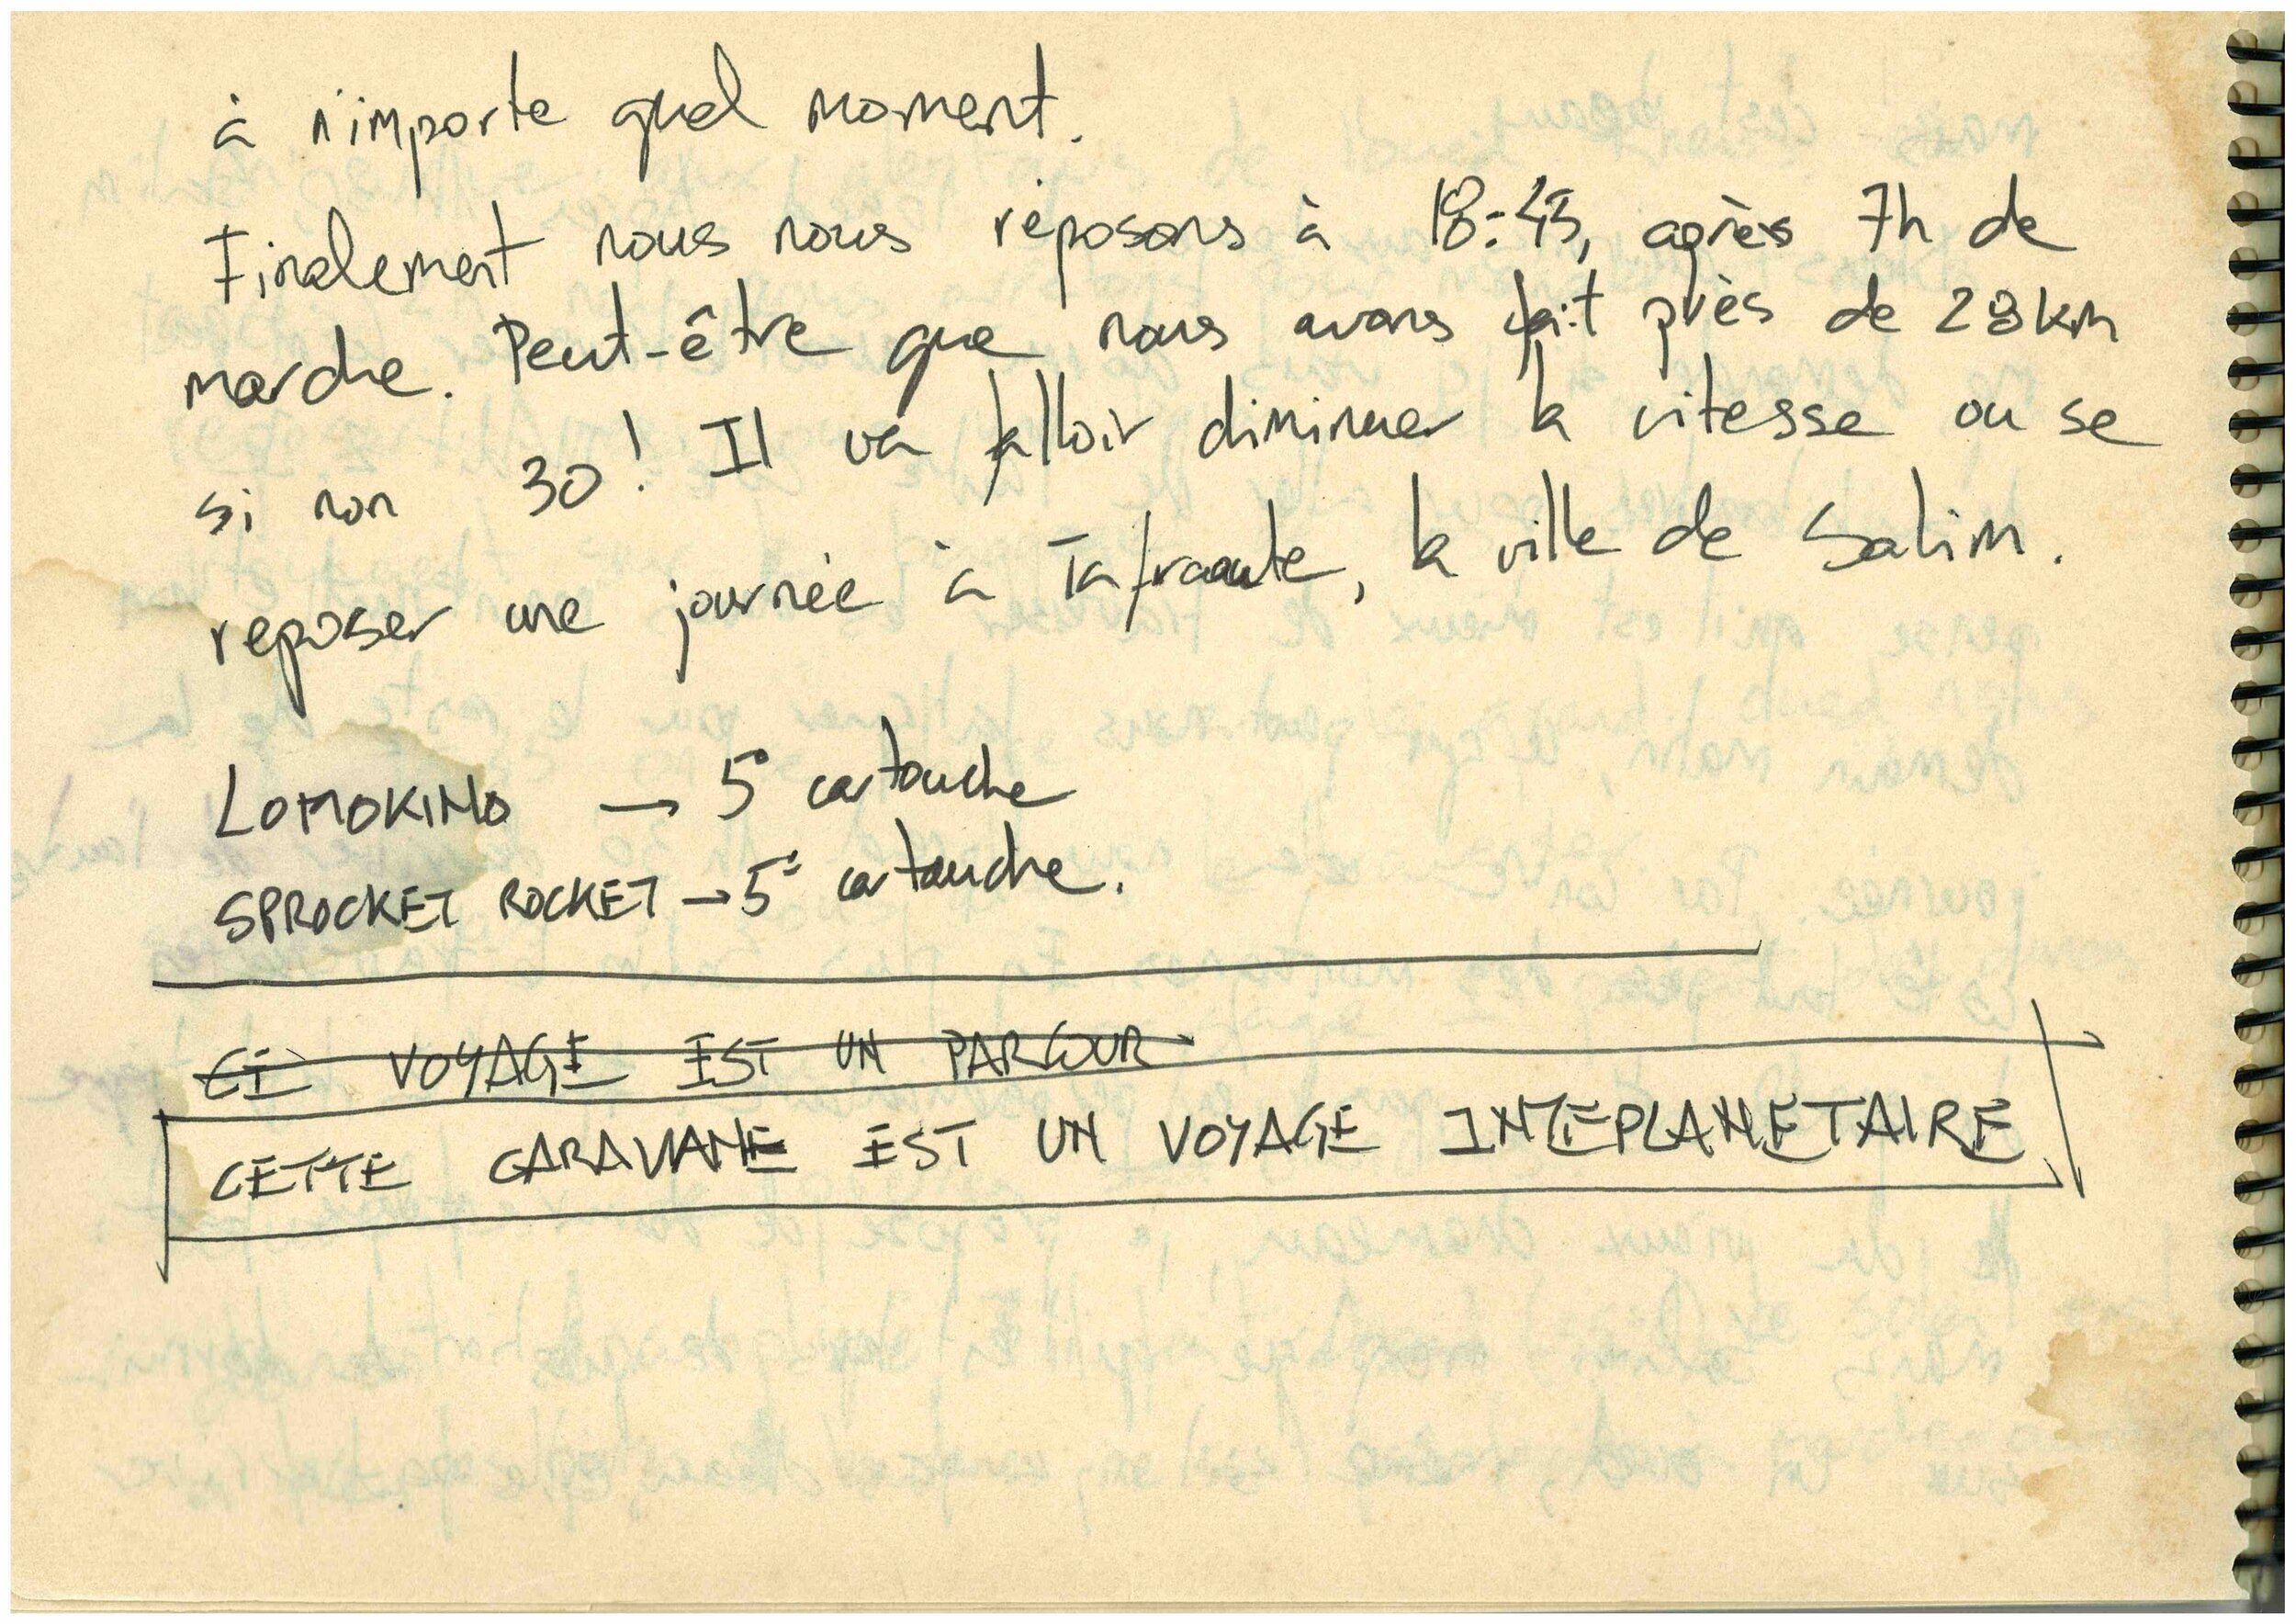 à n'importe quel moment.
Finalement nous nous réposons à 18:45, après 7h de
marche. Peut-être que nous avons fait près de 28km
si non 30! Il va falloir diminuer la vitesse ou se
reposer une journée à Tafraoute, la ville de Salim.
LOMOKINO → 5° cartouche
SPROCKET ROCKET → 5° cartouche.
CE VOYAGE EST UN PARCOUR
CETTE CARAVANE EST UN VOYAGE INTEPLANETAIRE